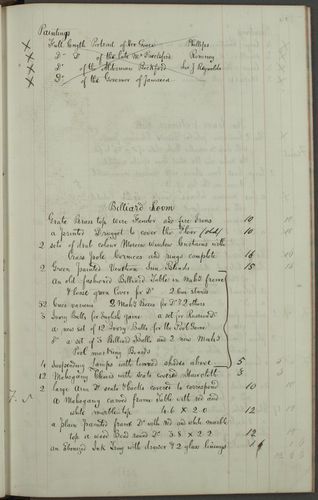 Paintings
X Full length Portrait of Her Grace Phillips
X Do Do of the late Mr Beckford Romney
X Do of the Alderman Beckford Sir J Reynolds
X Do of the Governor of Jamaica
Billiard Room
Grate Brass top wire Fender and fire Irons 10 10
a printed Drugget to cover the floor (old) 10 10
2 sets of drab colour Moreen Window Curtains with
Brass pole Cornices and rings complete 16 16
2 Green painted Venetian Sun Blinds 15 15
An old fashioned Billiard Table in Mahy frame
& loose green Cover for Do 2 Iron stands
52 Cues various 2 Mahy Boxes for Do & 2 others
3 Ivory Balls for English game a set for Russian Do
a new set of 12 Ivory Balls for the Pool Game
Do a set of 3 Billiard Balls and 2 new Mahy
Pool marking Boards
4 suspending Lamps with tinned shades above 5 5
12 Mahogany Chairs with seats covered Haircloth 3
2 large Arm Do seats & backs covered to correspond 10
a Mahogany carved frame Table with red and
white marble top 4.6 x 2.0 12
a plain painted frame Do with red and white marble
top a wood Bead round Do 3.8 x 2.2 12
an Ebonized Ink Tray with drawer & 2 glass linings